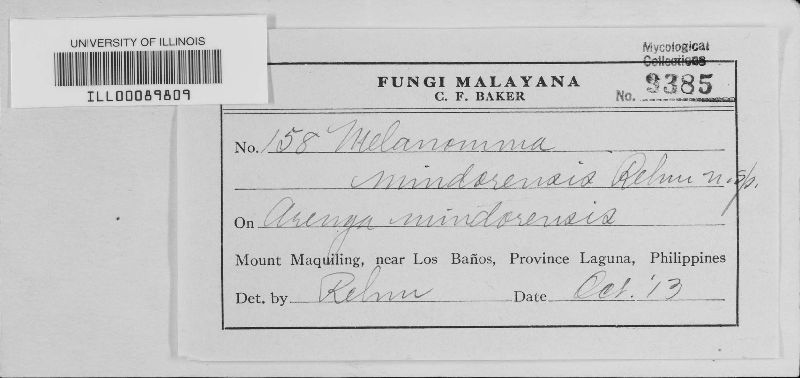 UNIVERSITY OF ILLINOIS
ILL00089809
Mycological
Collections
No. 3385
FUNGI MALAYANA
C. F. BAKER
No. 158 Melanomma
mindorensis Rehm n. sp.
On Arenga mindorensis
Mount Maquiling, near Los Baños, Province Laguna, Philippines
Det. by Rehm Date Oct. '13